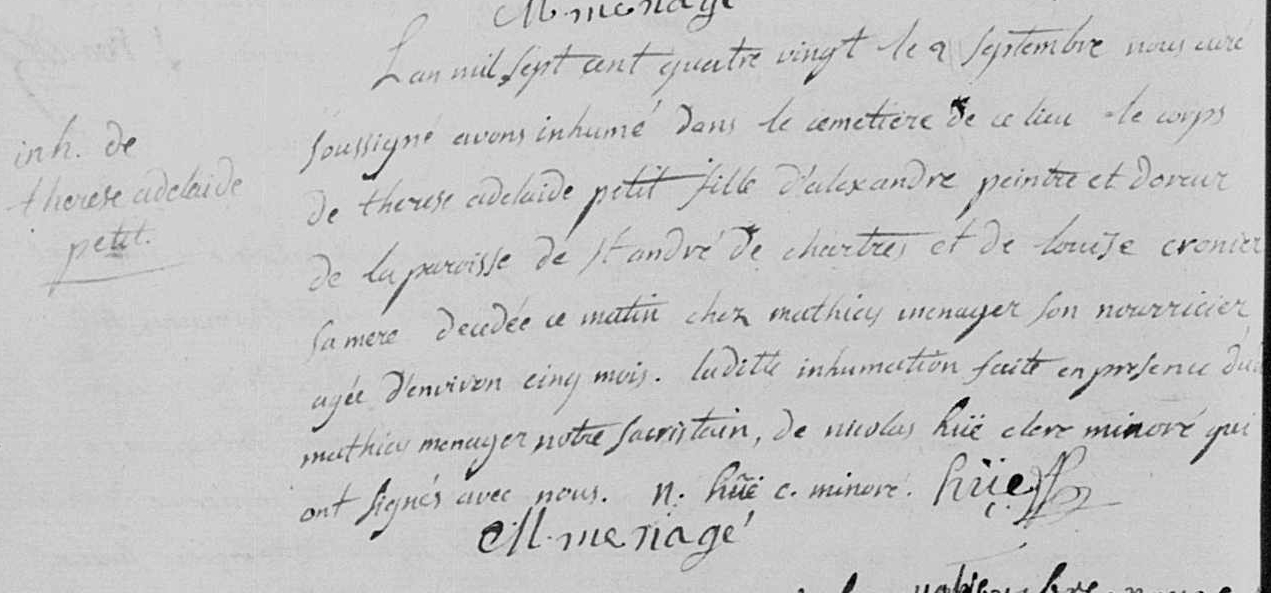 M. menagé
L'an mil sept cent quatre vingt le 2 septembre nous curé
soussigné avons inhumé dans le cemetiere de ce lieu le corps
de therese adelaide petit fille d'alexandre peintre et doreur
de la paroisse de st andré de chartres et de louise cronier
sa mere decedée ce matin chez mathieu menager son nourricier
agée d'environ cinq mois. laditte inhumation faite en presence dud
mathieu menager notre sacristain, de nicolas hüe clerc minoré qui
ont signés avec nous. n. hüe c. minoré. hüe
M. menagé
inh. de
therese adelaide
petit.